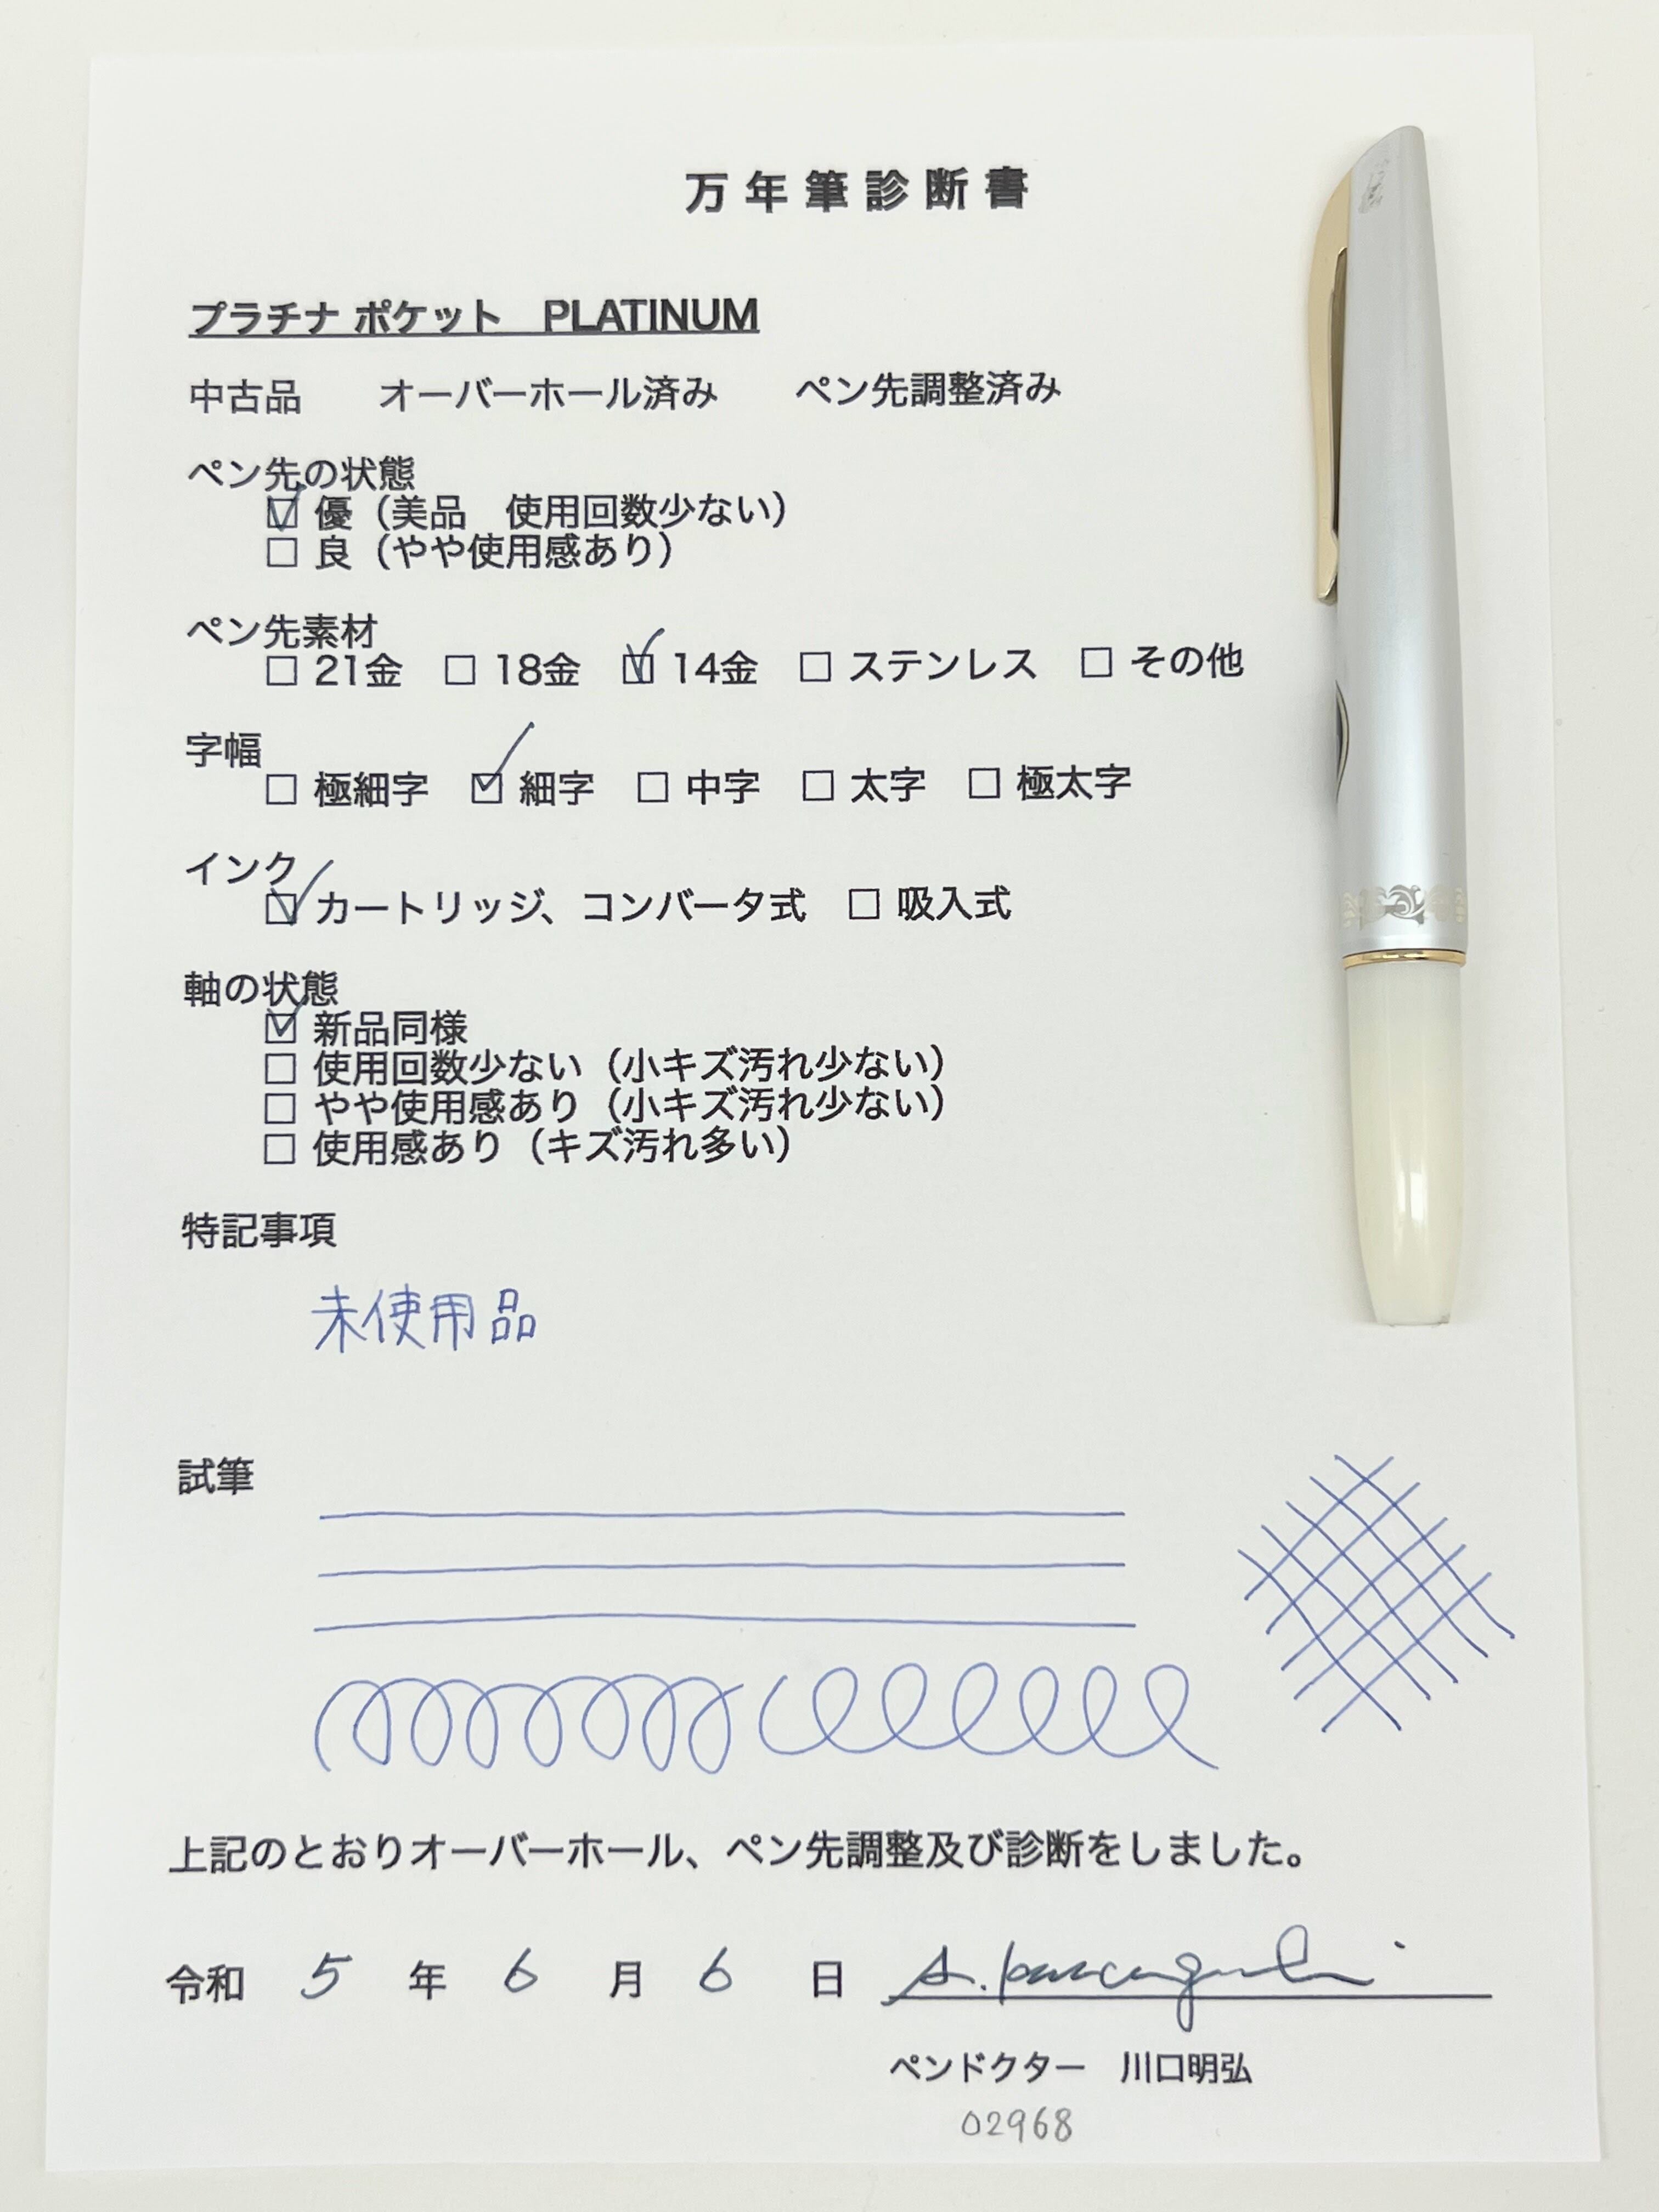 万年筆診断書
プラチナ ポケット　PLATINUM
中古品　　オーバーホール済み　　ペン先調整済み
ペン先の状態
☑ 優（美品　使用回数少ない）
☐ 良（やや使用感あり）
ペン先素材
☐ 21金　☐ 18金　☑ 14金　☐ ステンレス　☐ その他
字幅
☐ 極細字　☑ 細字　☐ 中字　☐ 太字　☐ 極太字
インク
☑ カートリッジ、コンバータ式　☐ 吸入式
軸の状態
☑ 新品同様
☐ 使用回数少ない（小キズ汚れ少ない）
☐ やや使用感あり（小キズ汚れ少ない）
☐ 使用感あり（キズ汚れ多い）
特記事項
未使用品
試筆
上記のとおりオーバーホール、ペン先調整及び診断をしました。
令和　5　年　6　月　6　日　A. Kawaguchi
ペンドクター　川口明弘
02968